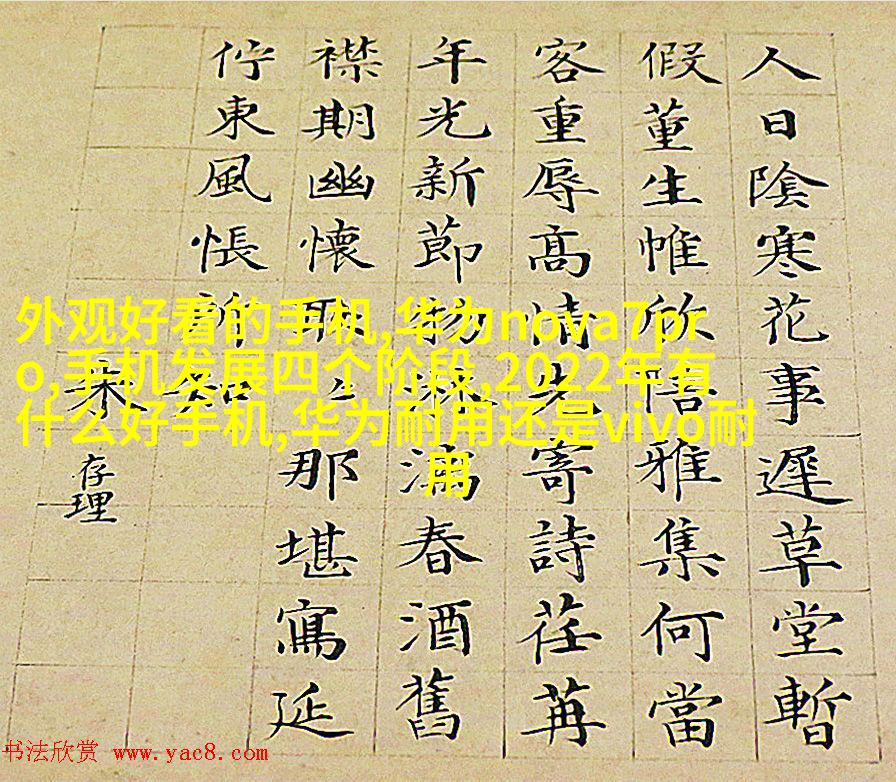 人日陰寒花事遲草堂暫
假董生帷欣陪雅集何當
客重辱高情先寄詩荏苒
年光新節物淋漓春酒舊
襟期幽懷那堪寫延
佇東風悵所知
存理
外观好看的手机,华为nova7pr
o,手机发展四个阶段,2022年有
什么好手机,华为耐用还是vivo耐
用
书法欣赏 www.yac8.com